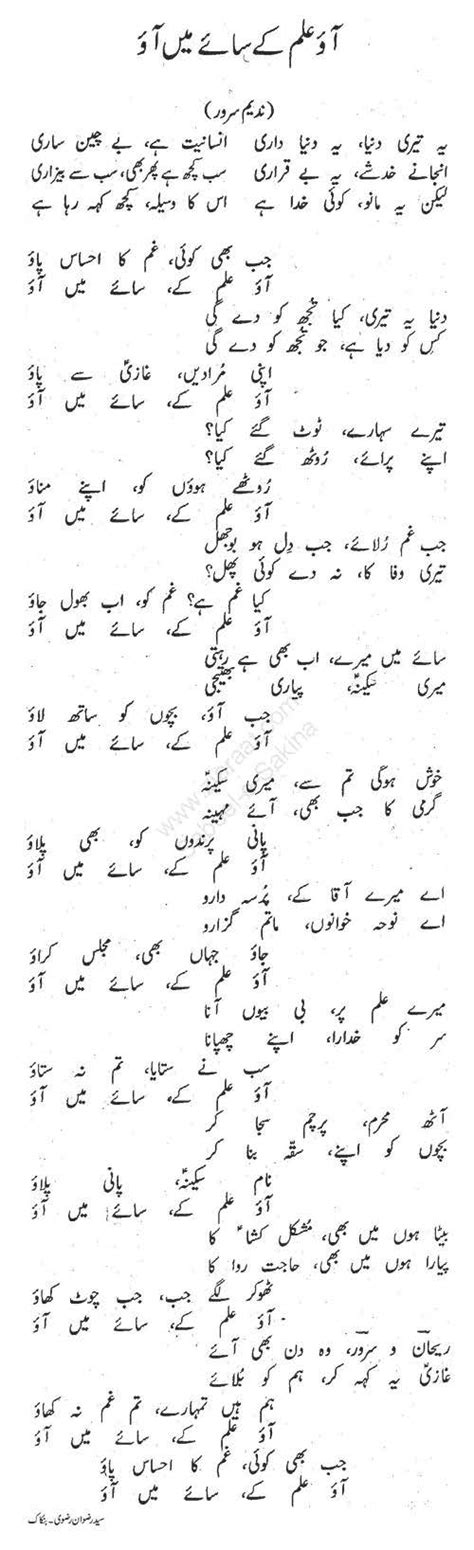 آؤ علم کے سائے میں آؤ
(ندیم سرور)
یہ تیری دنیا، یہ دنیا داری انسانیت ہے، بے چین ساری
انجانے خدشے، یہ بے قراری سب کچھ ہے پھر بھی، سب سے بیزاری
لیکن یہ مانو، کوئی خدا ہے اس کا وسیلہ، کچھ کہہ رہا ہے
جب بھی کوئی، غم کا احساس پاؤ
آؤ علم کے، سائے میں آؤ
دنیا یہ تیری، کیا تجھ کو دے گی
کس کو دیا ہے، جو تجھ کو دے گی
اپنی مُرادیں، غازیؑ سے پاؤ
آؤ علم کے، سائے میں آؤ
تیرے سہارے، ٹوٹ گئے کیا؟
اپنے پرائے، رُوٹھ گئے کیا؟
رُوٹھے ہوؤں کو، اپنے مناؤ
آؤ علم کے، سائے میں آؤ
جب غم رُلائے، جب دِل ہو بوجھل
تیری وفا کا، نہ دے کوئی پھل؟
کیا غم ہے؟ غم کو، اب بھول جاؤ
آؤ علم کے، سائے میں آؤ
سائے میں میرے، اب بھی ہے رہتی
میری سکینہؑ، پیاری بھتیجی
جب آؤ، بچوں کو ساتھ لاؤ
آؤ علم کے، سائے میں آؤ
خوش ہوگی تم سے، میری سکینہؑ
گرمی کا جب بھی، آئے مہینہ
پانی پرندوں کو، بھی پلاؤ
آؤ علم کے، سائے میں آؤ
اے میرے آقا کے، پُرسہ دارو
اے نوحہ خوانوں، ماتم گزارو
جاؤ جہاں بھی، مجلس کراؤ
آؤ علم کے، سائے میں آؤ
میرے علم پر، بی بیوں آنا
سر کو خدارا، اپنے چھپانا
سب نے ستایا، تم نہ ستاؤ
آؤ علم کے، سائے میں آؤ
آٹھ محرم، پرچم سجا کر
بچوں کو اپنے، سقّہ بنا کر
نام سکینہؑ، پانی پلاؤ
آؤ علم کے، سائے میں آؤ
بیٹا ہوں میں بھی، مُشکل کشاؑ کا
پیارا ہوں میں بھی، حاجت روا کا
ٹھوکر لگے جب، جب چوٹ کھاؤ
آؤ علم کے، سائے میں آؤ
ریحان و سرور، وہ دن بھی آئے
غازیؑ یہ کہہ کر، ہم کو بُلائے
ہم ہیں تمہارے، تم غم نہ کھاؤ
آؤ علم کے، سائے میں آؤ
جب بھی کوئی، غم کا احساس پاؤ
آؤ علم کے، سائے میں آؤ
سید رضوان رضوی۔ بنکاک